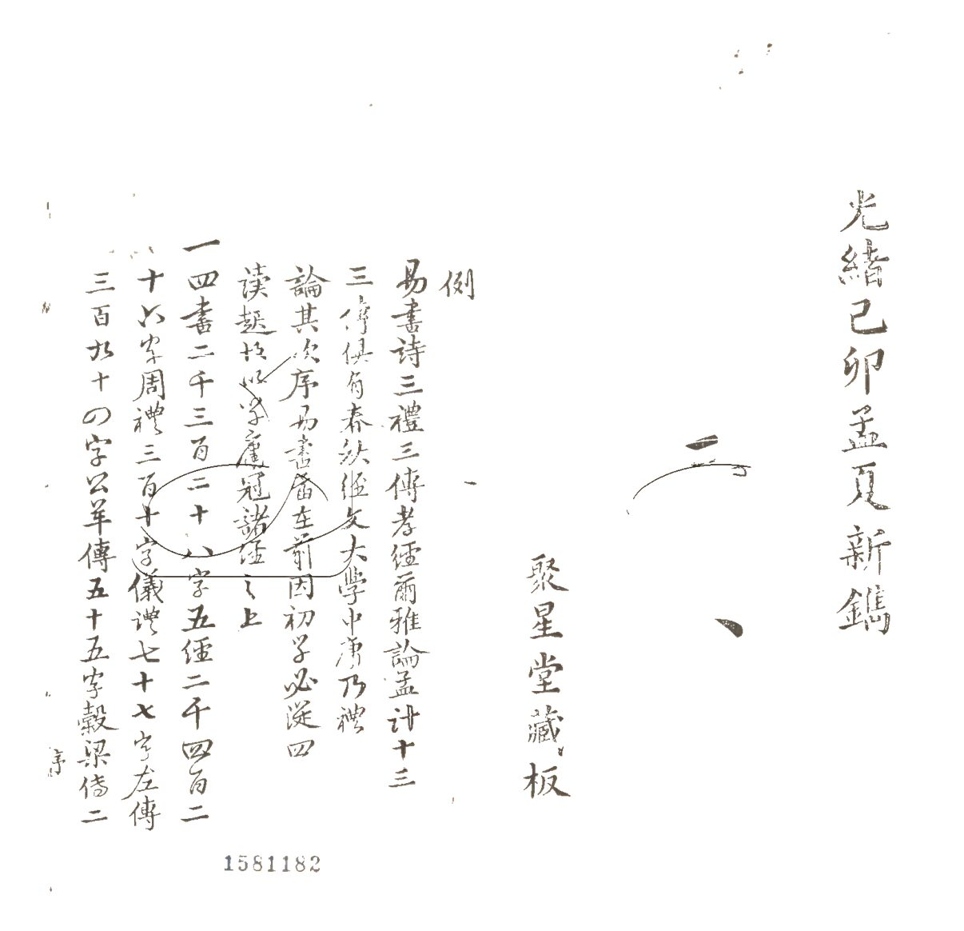 光緒己卯孟夏新鐫
二
聚星堂藏板
例
易書詩三禮三傳孝經爾雅論孟計十三
三傳俱有春秋經文大學中庸乃禮
論其次序易書當在前因初學必從四
讀起故以學庸冠諸經之上
一四書二千三百二十八字五經二千四百二
十六字周禮三百十字儀禮七十七字左傳
三百九十四字公羊傳五十五字穀梁傳二
序
1581182